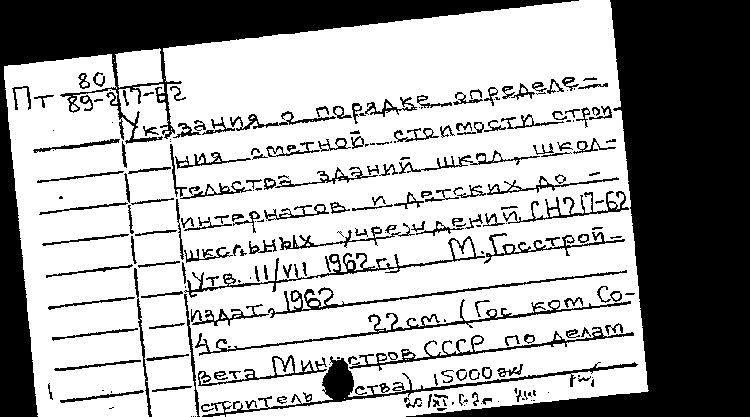 Пт 80
89-217-62
Указания о порядке определе-
ния сметной стоимости строи-
тельства зданий школ, школ-
интернатов и детских до-
школьных учреждений СН217-62
Утв. 11/VII 1962г.] М., Госстрой-
издат, 1962.
4с. 22см. (Гос. ком. Со-
вета Министров СССР по делам
строительства). 15000 экз
20/XI.62г.